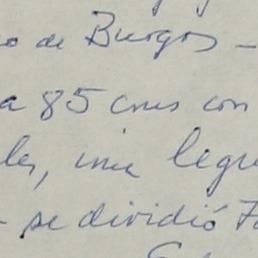 o de Burgos -
a 85 cms con
les, una legu
- se dividió